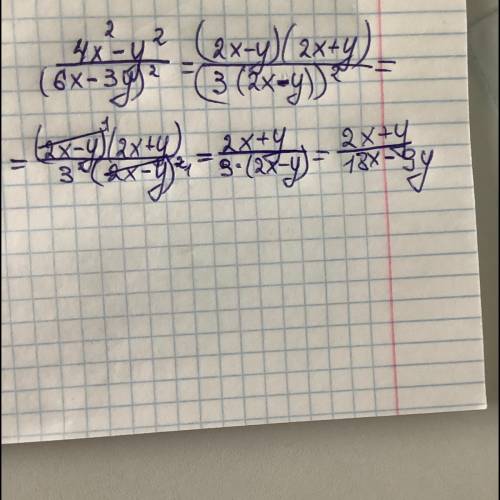 (4x² - y²)/(6x - 3y)² = (2x - y)(2x + y)/(3(2x - y))² =
= (2x - y)¹(2x + y)/3²(2x - y)²¹ = 2x + y/9·(2x - y) = 2x + y/18x - 9y